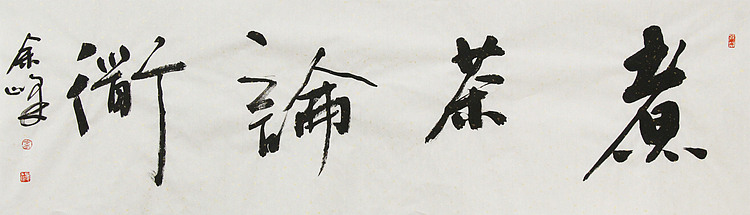 煮茶論衜
余峰